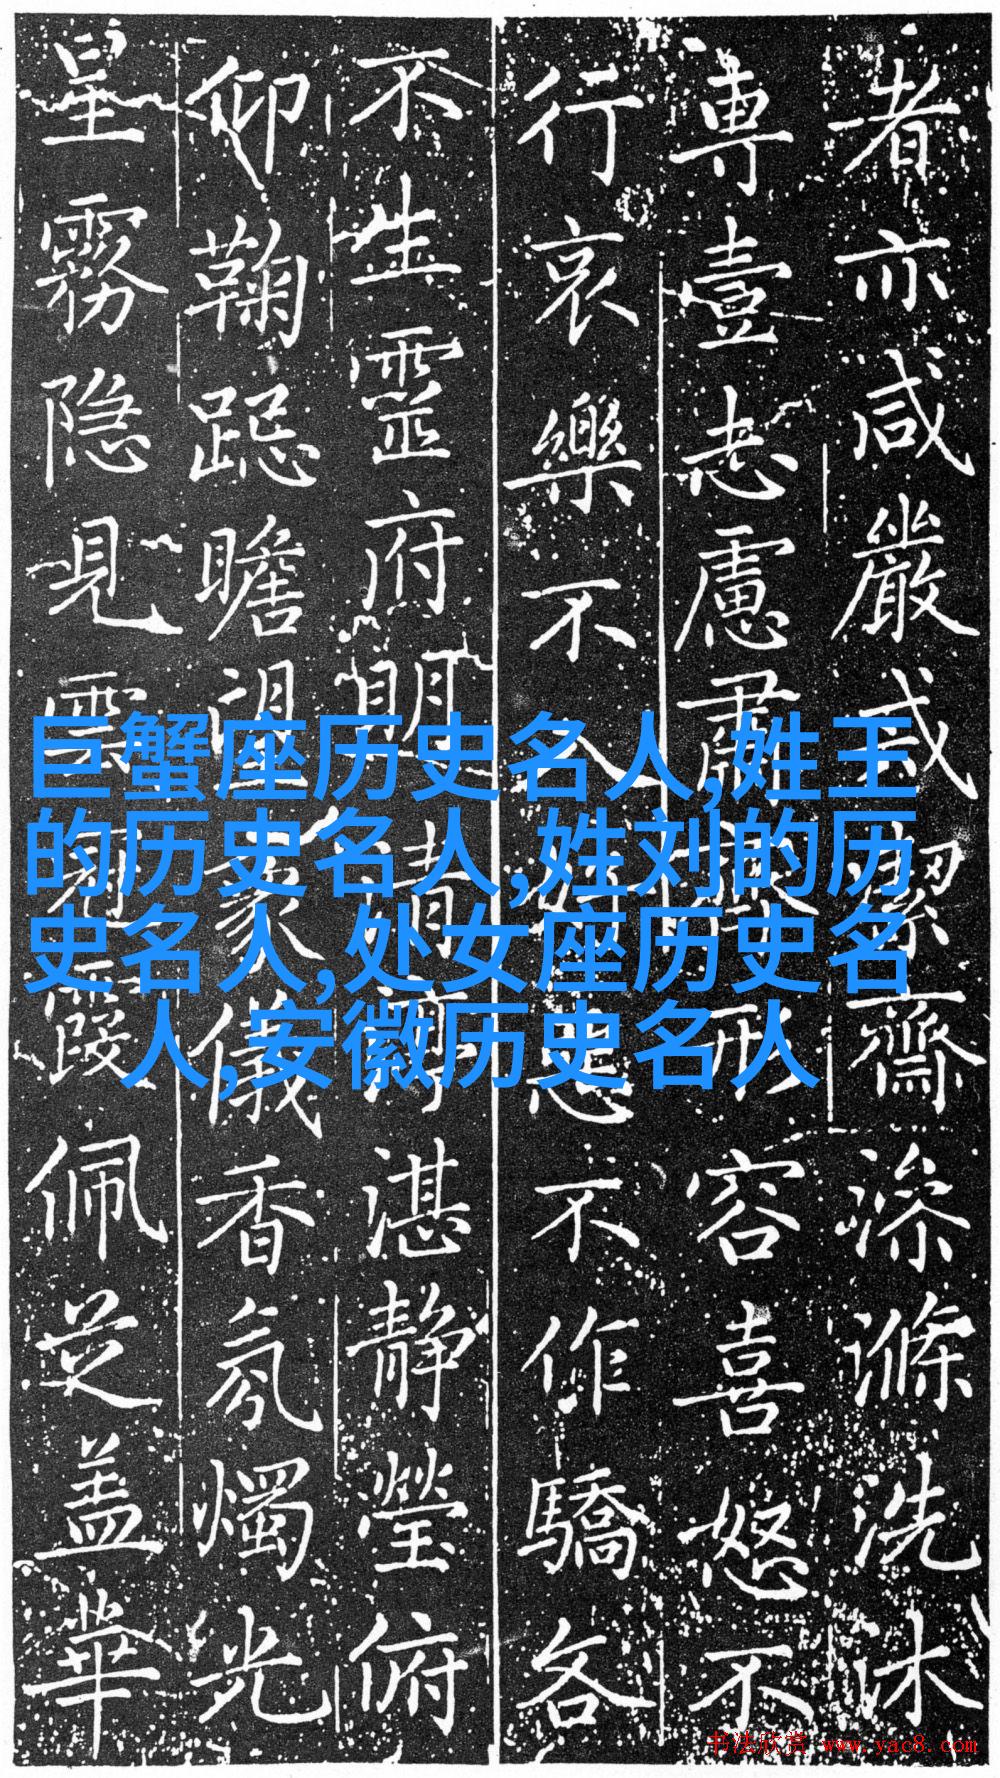 者亦咸嚴式絜齋澡滌洗沐
専壹志慮肅形容喜怒不
行哀樂不入不作驕各
不生靈府明清湛静瑩俯
仰鞠跽瞻望衆儀香氛燭光
星霧隐見雲霞佩芝盖華
巨蟹座历史名人,姓王
的历史名人,姓刘的历
史名人,处女座历史名
人,安徽历史名人
书法欣赏 www.yac8.com